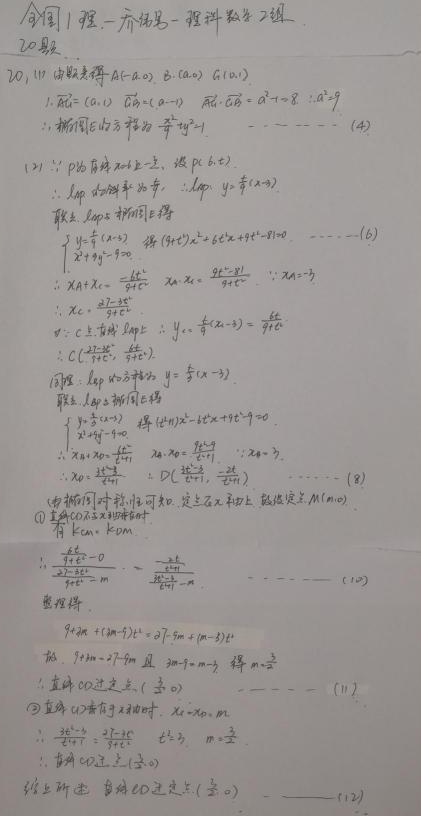 全国1理-乔伟昌-理科数学2组
20题
20, (1) 由题意得 A(-a.0) B.(a.0) G(0.1)
∴ AG⃗=(a,1) GB⃗=(a.-1) AG⃗·GB⃗=a²-1=8 ∴a²=9
∴椭圆E的方程为 x²/9+y²=1 ------- (4)
(2) ∵ P为直线x=6上一点, 设P(6.t)
∴ lAP的斜率为 t/9, ∴lAP: y=t/9(x-3)
联立lAP与椭圆E得
{ y=t/9(x-3) 得(9+t²)x²+6t²x+9t²-81=0 ------(6)
x²+9y²-9=0
∴ xA+xC=-6t²/9+t² xA·xC=9t²-81/9+t² ∵xA=-3
∴ xC=27-3t²/9+t²
又∵C点在直线lAP上 ∴yC=t/9(xC-3)=6t/9+t²
∴ C(27-3t²/9+t², 6t/9+t²)
同理: lBP的方程为 y=t/3(x-3)
联立lBP与椭圆E得
{ y=t/3(x-3) 得(t²+1)x²-6t²x+9t²-9=0
x²+9y²-9=0
∴xB+xD=6t²/t²+1 xB·xD=9t²-9/t²+1 ∵xB=3
∴xD=3t²-3/t²+1 ∴D(3t²-3/t²+1, -2t/t²+1) ------(8)
由椭圆对称性可知. 定点在x轴上 故设定点M(m.0)
① 直线CD不与x轴垂直时
有 kCM=kDM
∴ (6t/9+t² -0)/(27-3t²/9+t² -m) = (-2t/t²+1)/(3t²-3/t²+1 -m) ------- (10)
整理得
9+3m+(3m-9)t²=27-9m+(m-3)t²
故 9+3m=27-9m 且 3m-9=m-3 得m=3/2
∴直线CD过定点(3/2.0) ----- (11)
② 直线CD垂直于x轴时. xC=xD=m
∴ 3t²-3/t²+1=27-3t²/9+t² t²=3 m=3/2
∴直线CD过点(3/2.0)
综上所述 直线CD过定点(3/2.0) ------ (12)